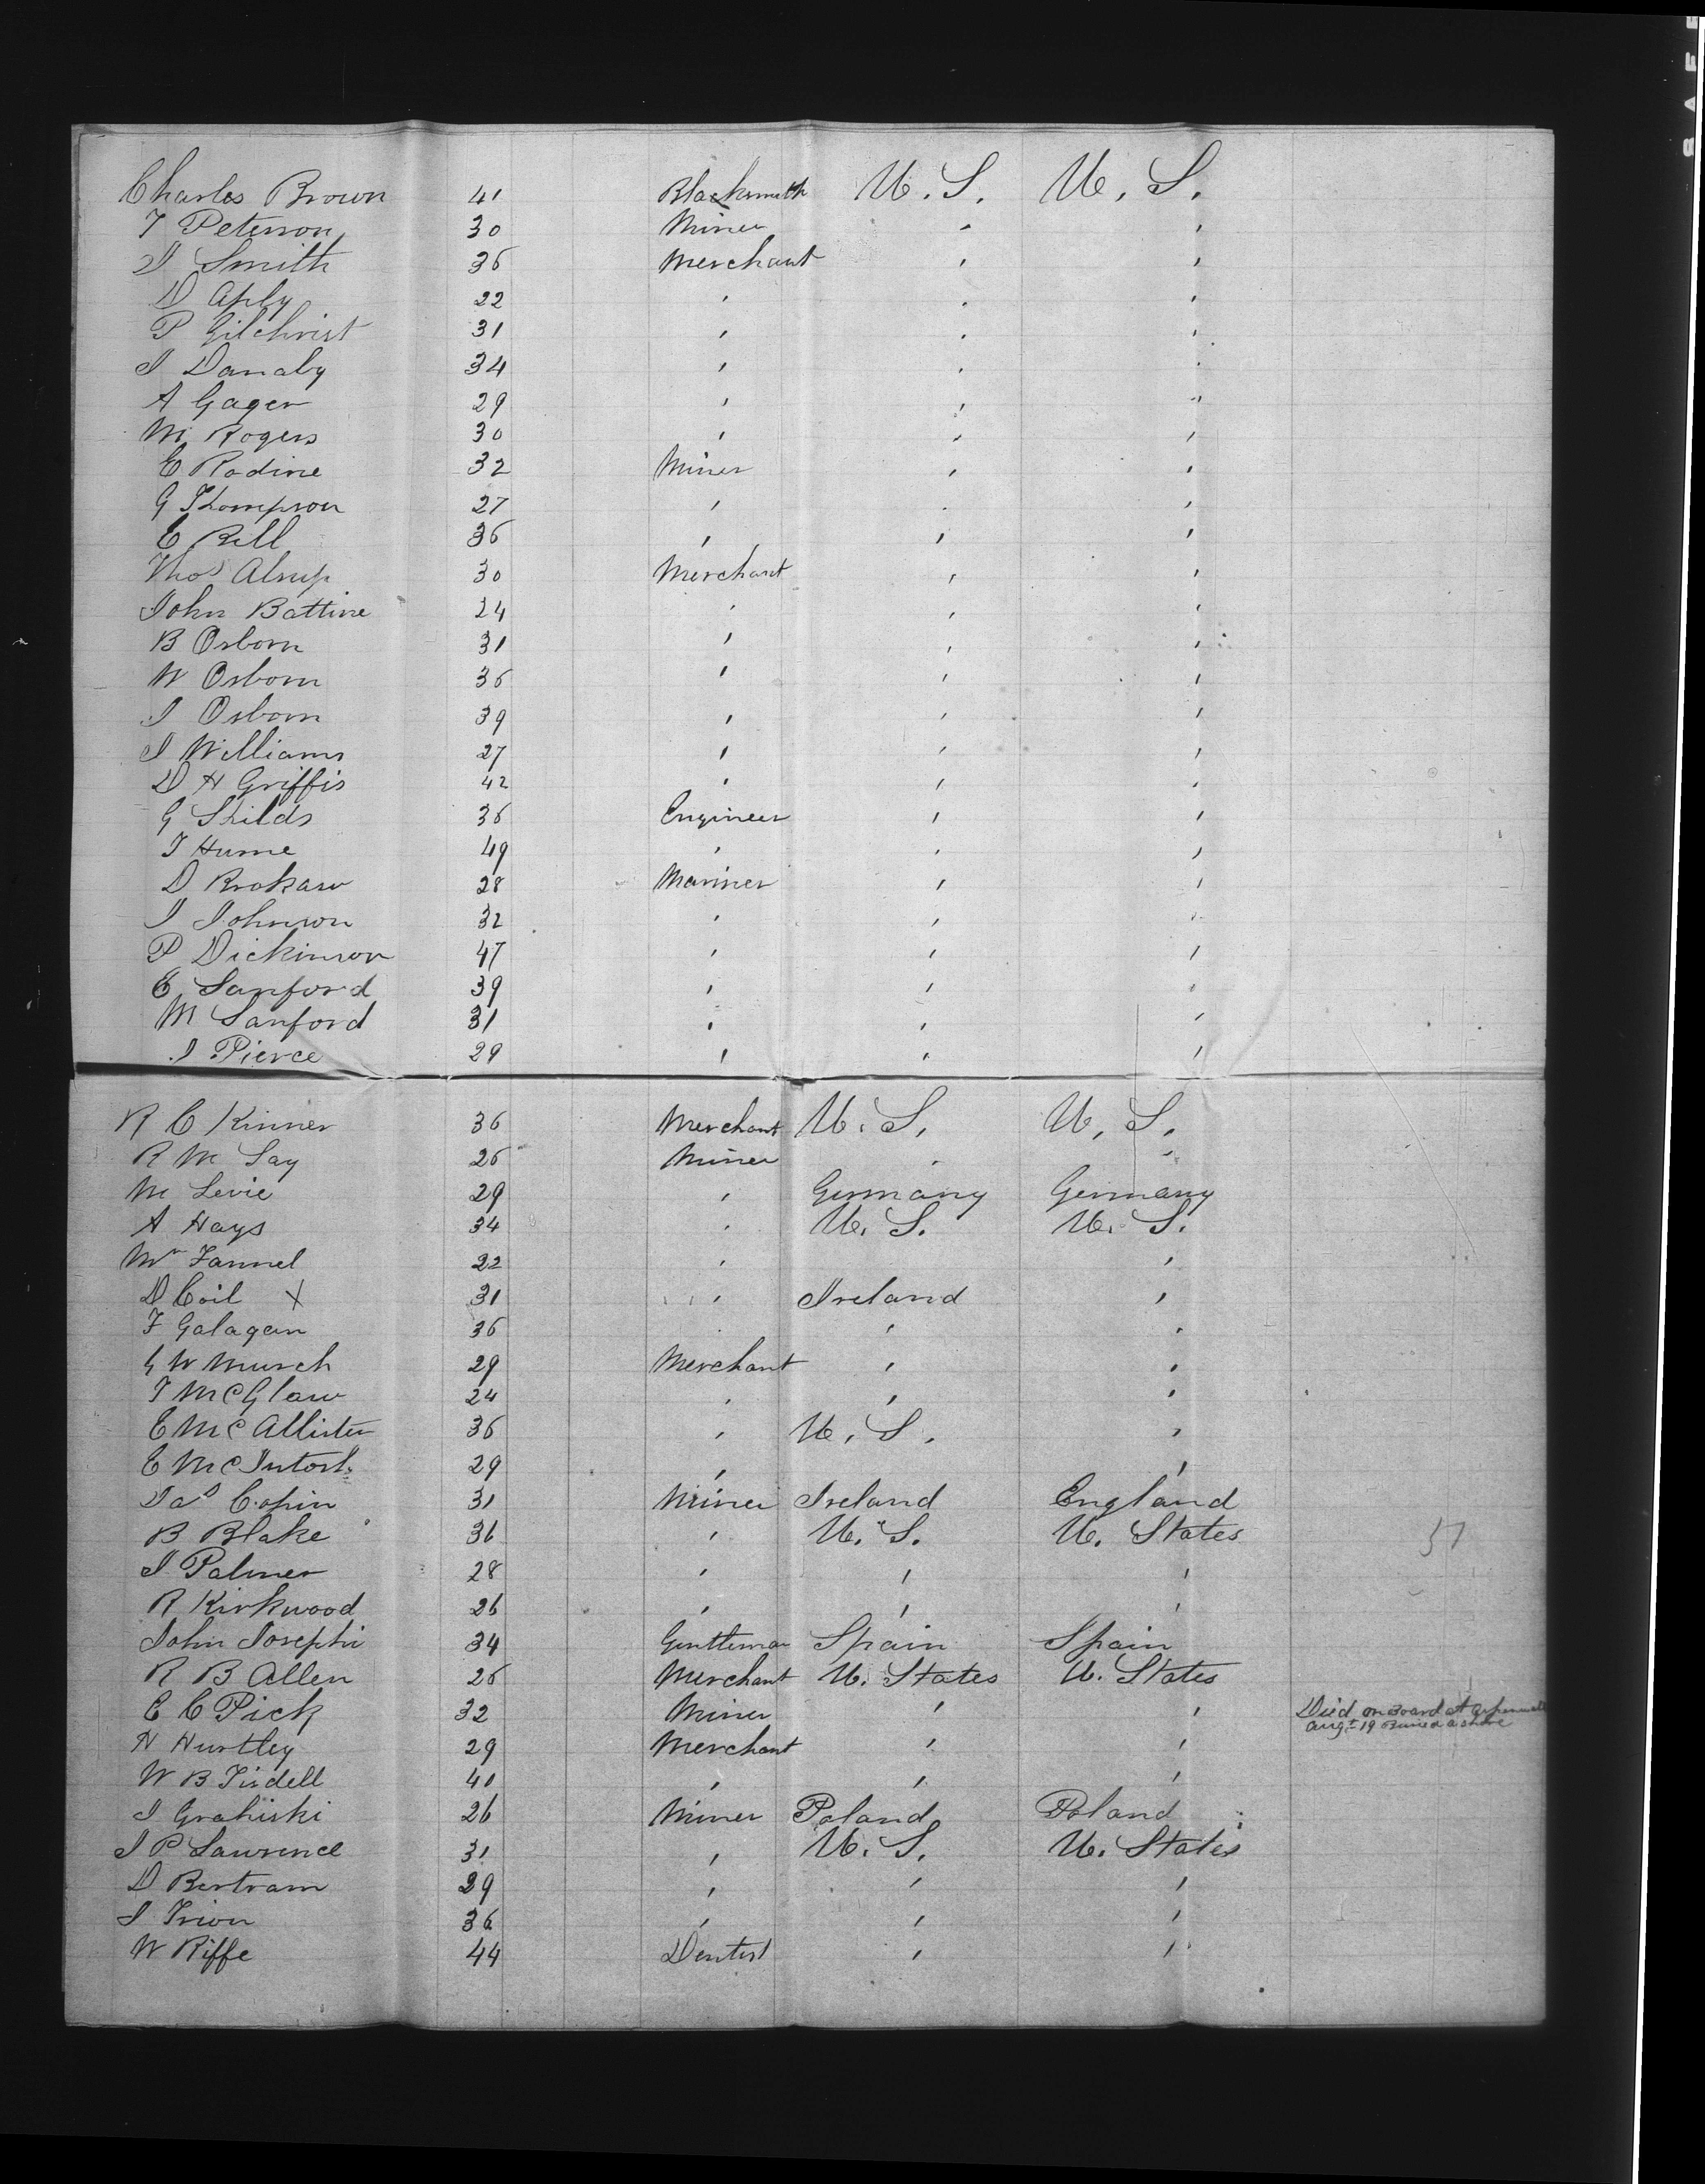 Charles Brown 41 Blacksmith U. S. U. S.
T Peterson 30 Miner " "
J Smith 36 Merchant " "
D Aply 22 " " "
P Gilchrist 31 " " "
J Danaby 34 " " "
A Gager 29 " " "
M Rogers 30 " " "
E Rodine 32 Miner " "
G Thompson 27 " " "
E Bell 36 " " "
Thos Alsup 30 Merchant " "
John Battine 24 " " "
B Osborn 31 " " "
W Osborn 36 " " "
J Osborn 39 " " "
J Williams 27 " " "
D H Griffis 42 " " "
G Shilds 36 Engineer " "
T Hume 49 " " "
D Brokaw 28 Mariner " "
J Johnson 32 " " "
P Dickinson 47 " " "
E Sanford 39 " " "
M Sanford 31 " " "
J Pierce 29 " " "
R C Kinner 36 Merchant U. S. U. S.
R M Say 26 Miner " "
M Levie 29 " Germany Germany
A Hays 34 " U. S. U. S.
Wm Fannel 22 " "
D Coil X 31 " Ireland "
F Galagan 36 " "
G W Murch 29 Merchant " "
T McGlaw 24 " " "
E McAllister 36 " U. S. "
E McIntosh 29 " "
Jas Copin 31 Miner Ireland England
B Blake 36 " U. S. U. States
J Palmer 28 " " "
R Kirkwood 26 " " "
John Josephi 34 Gentleman Spain Spain
R B Allen 26 Merchant U. States U. States
E C Pick 32 Miner " " Died on Board at Aspinwall
Augt 19 Buried ashore
H Hurtley 29 Merchant " "
W B Tisdell 40 " " "
J Grahiski 26 Miner Poland Poland
J P Lawrence 31 " U. S. U. States
D Bertram 29 " " "
J Trion 36 " " "
W Riffe 44 Dentist " "